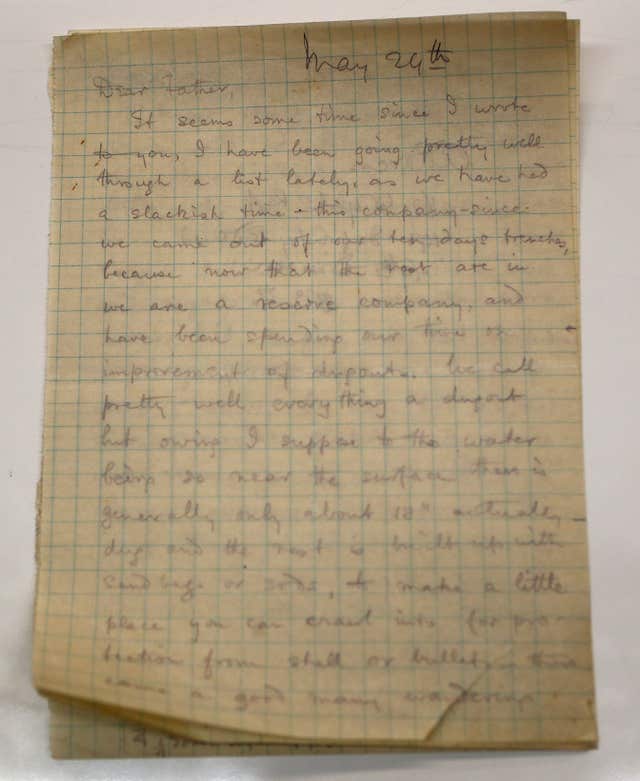 May 29th
Dear Father,
It seems some time since I wrote
to you, I have been going pretty well
through a list lately, as we have had
a slackish time + this company since
we came out of our ten days trenches,
because now that the rest are in
we are a reserve company, and
have been spending our time on
improvement of dugouts. We call
pretty well everything a dugout
but owing I suppose to the water
being so near the surface there is
generally only about 18" actually
dug and the rest is built up with
sand bags or sods, to make a little
place you can crawl into for pro-
tection from shell or bullets
came a good many wandering